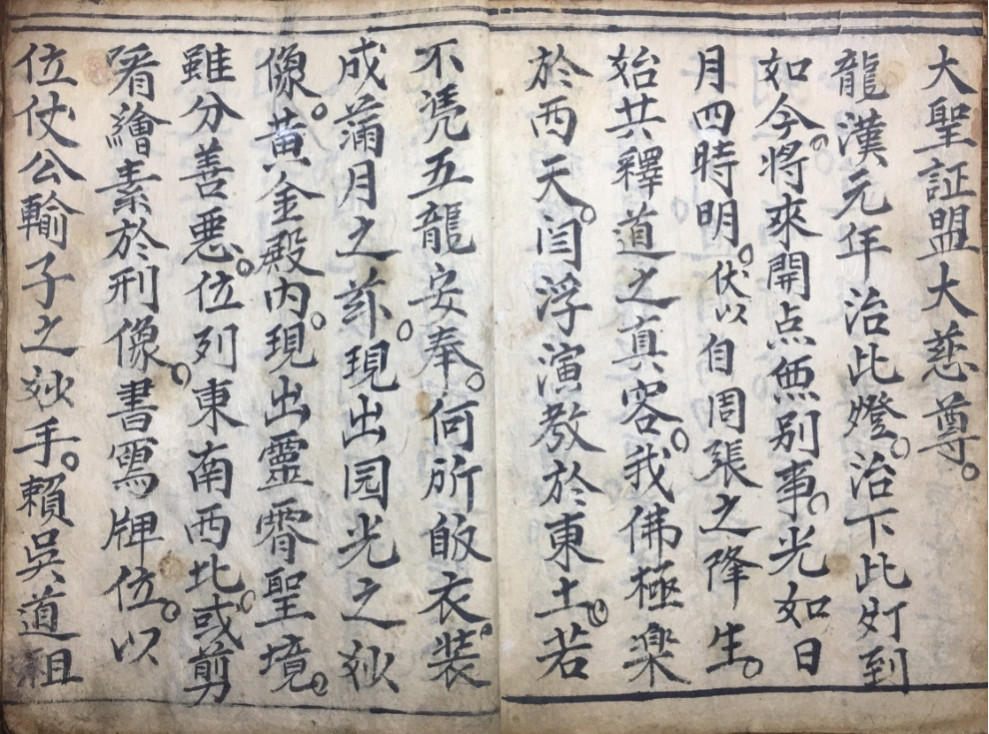 大聖証盟大慈尊。
龍漢元年治此燈。治下此灯到
如今。將來開点無別事。光如日
月四時明。伏以自周張之降生。
始共釋道之真容。我佛極樂
於西天。閆浮演教於東土。若
不凭五龍安奉。何所皈衣。裝
成蒲月之，現出园光之妙
像。黄金殿内。現出靈霄聖境。
雖分善悪。位列東南西北。或剪
看繪素於刑像。書寫牌位。以
位仗公輸子之妙手。賴吳道祖